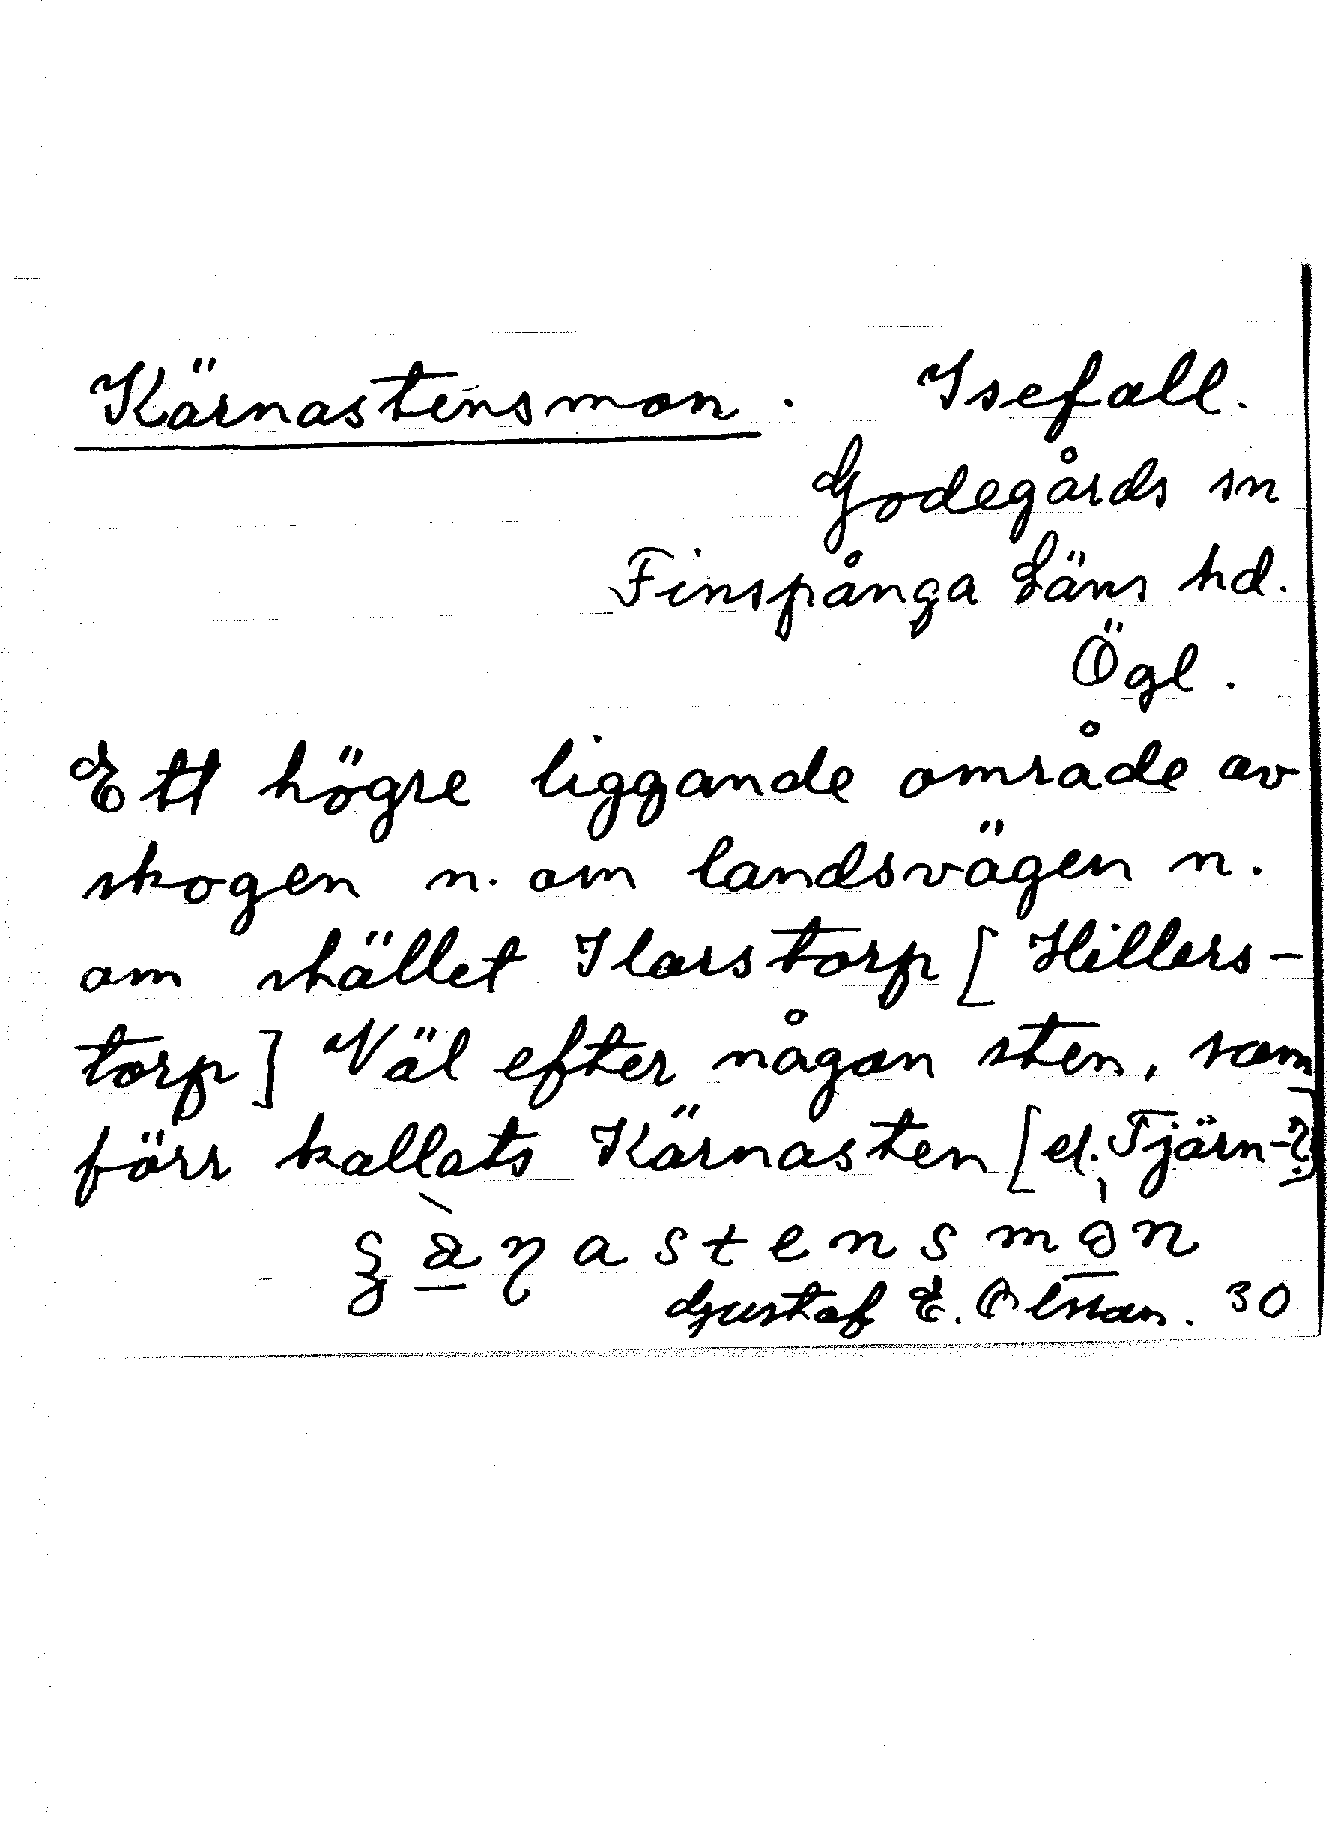 Kärnastensmon. Isefall.
Godegårds sn
Finspånga Läns hd.
Ögl.
Ett högre liggande område av
skogen n. om landsvägen n.
om stället Ilarstorp [Hillers-
torp] Väl efter någon sten, som
förr kallats Kärnasten [el. Tjärn-?]
Gustaf E. Olsson. 30